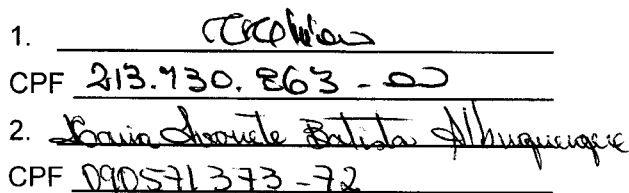 1.
CPF 213.730.863-00
2. Batista Albuquerque
CPF 090571373-72